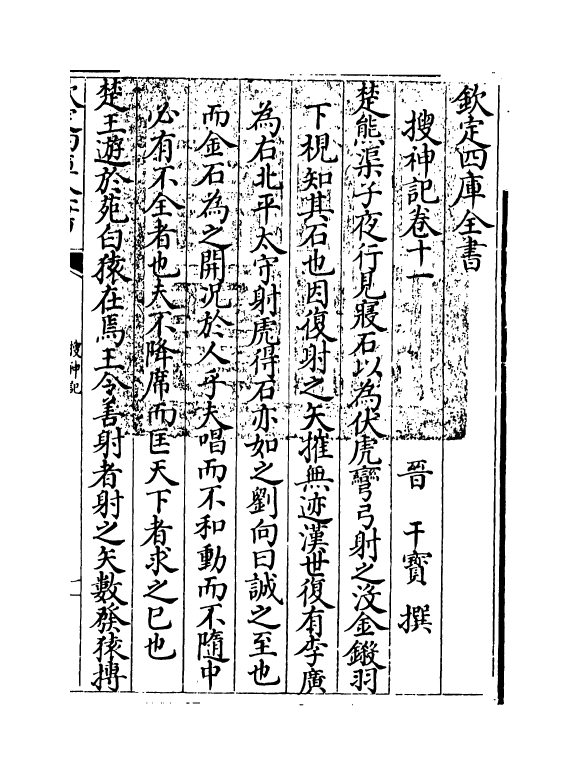 欽定四庫全書
搜神記卷十一
晉 干寶 撰
楚熊渠子夜行見寢石以為伏虎彎弓射之没金鎩羽
下視知其石也因復射之矢摧無迹漢世復有李廣
為右北平太守射虎得石亦如之劉向曰誠之至也
而金石為之開况於人乎夫唱而不和動而不隨中
必有不全者也夫不降席而匡天下者求之已也
楚王遊於苑白猿在焉王令善射者射之矢數發猿搏
搜神記